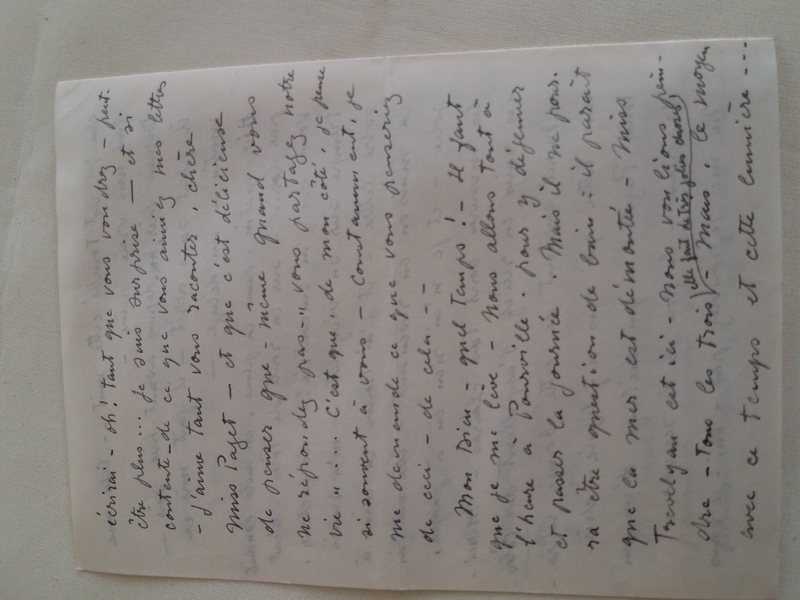 écrirai - oh! tant que vous voudrez - peut-
être plus... je suis surprise — et si
contente - de ce que vous aimiez mes lettres
- j'aime tant vous raconter, chère
Miss Paget — et que c'est délicieuse
de penser que - même quand vous
ne répondez pas - "vous partagez notre
vie"... C'est que, de mon côté, je pense
si souvent à vous - constamment, je
me demande ce que vous penseriez
de ceci - de cela - -
Mon Dieu - quel temps! - Il faut
que je me lève - Nous allons tout à
l'heure à Pourville - pour y déjeuner
et passer la journée. Mais il ne pour-
ra être question de bain - il paraît
que la mer est démontée - Miss
Trevelyan est ici - Nous voulions pein-
dre - Tous les trois (elle fait de très jolies choses) - Mais, le moyen
avec ce temps et cette lumière ---